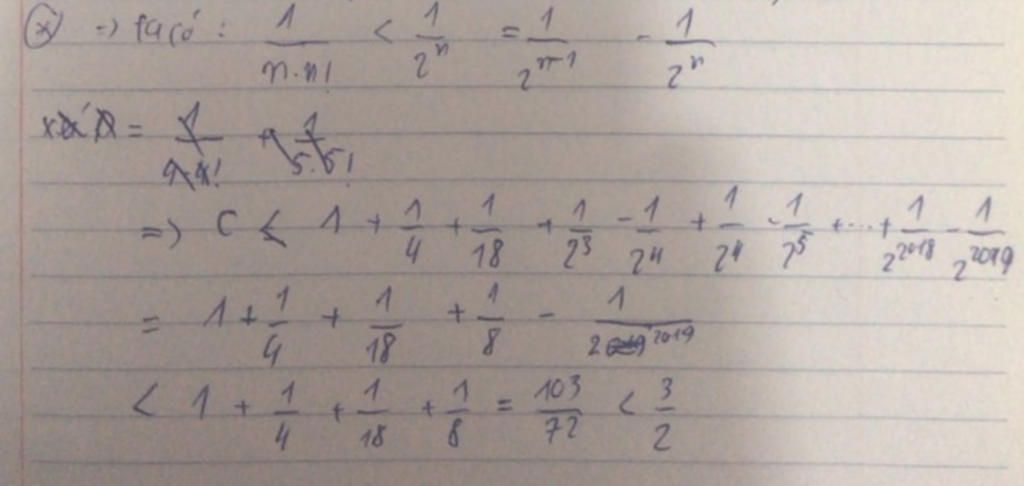 (*) => ta có: 1/(n.n!) < 1/2^n = 1/2^(n-1) - 1/2^n
=> C ≤ 1 + 1/4 + 1/18 + 1/2^3 - 1/2^4 + 1/2^4 - 1/2^5 + ... + 1/2^2018 - 1/2^2019
= 1 + 1/4 + 1/18 + 1/8 - 1/2^2019
< 1 + 1/4 + 1/18 + 1/8 = 103/72 < 3/2